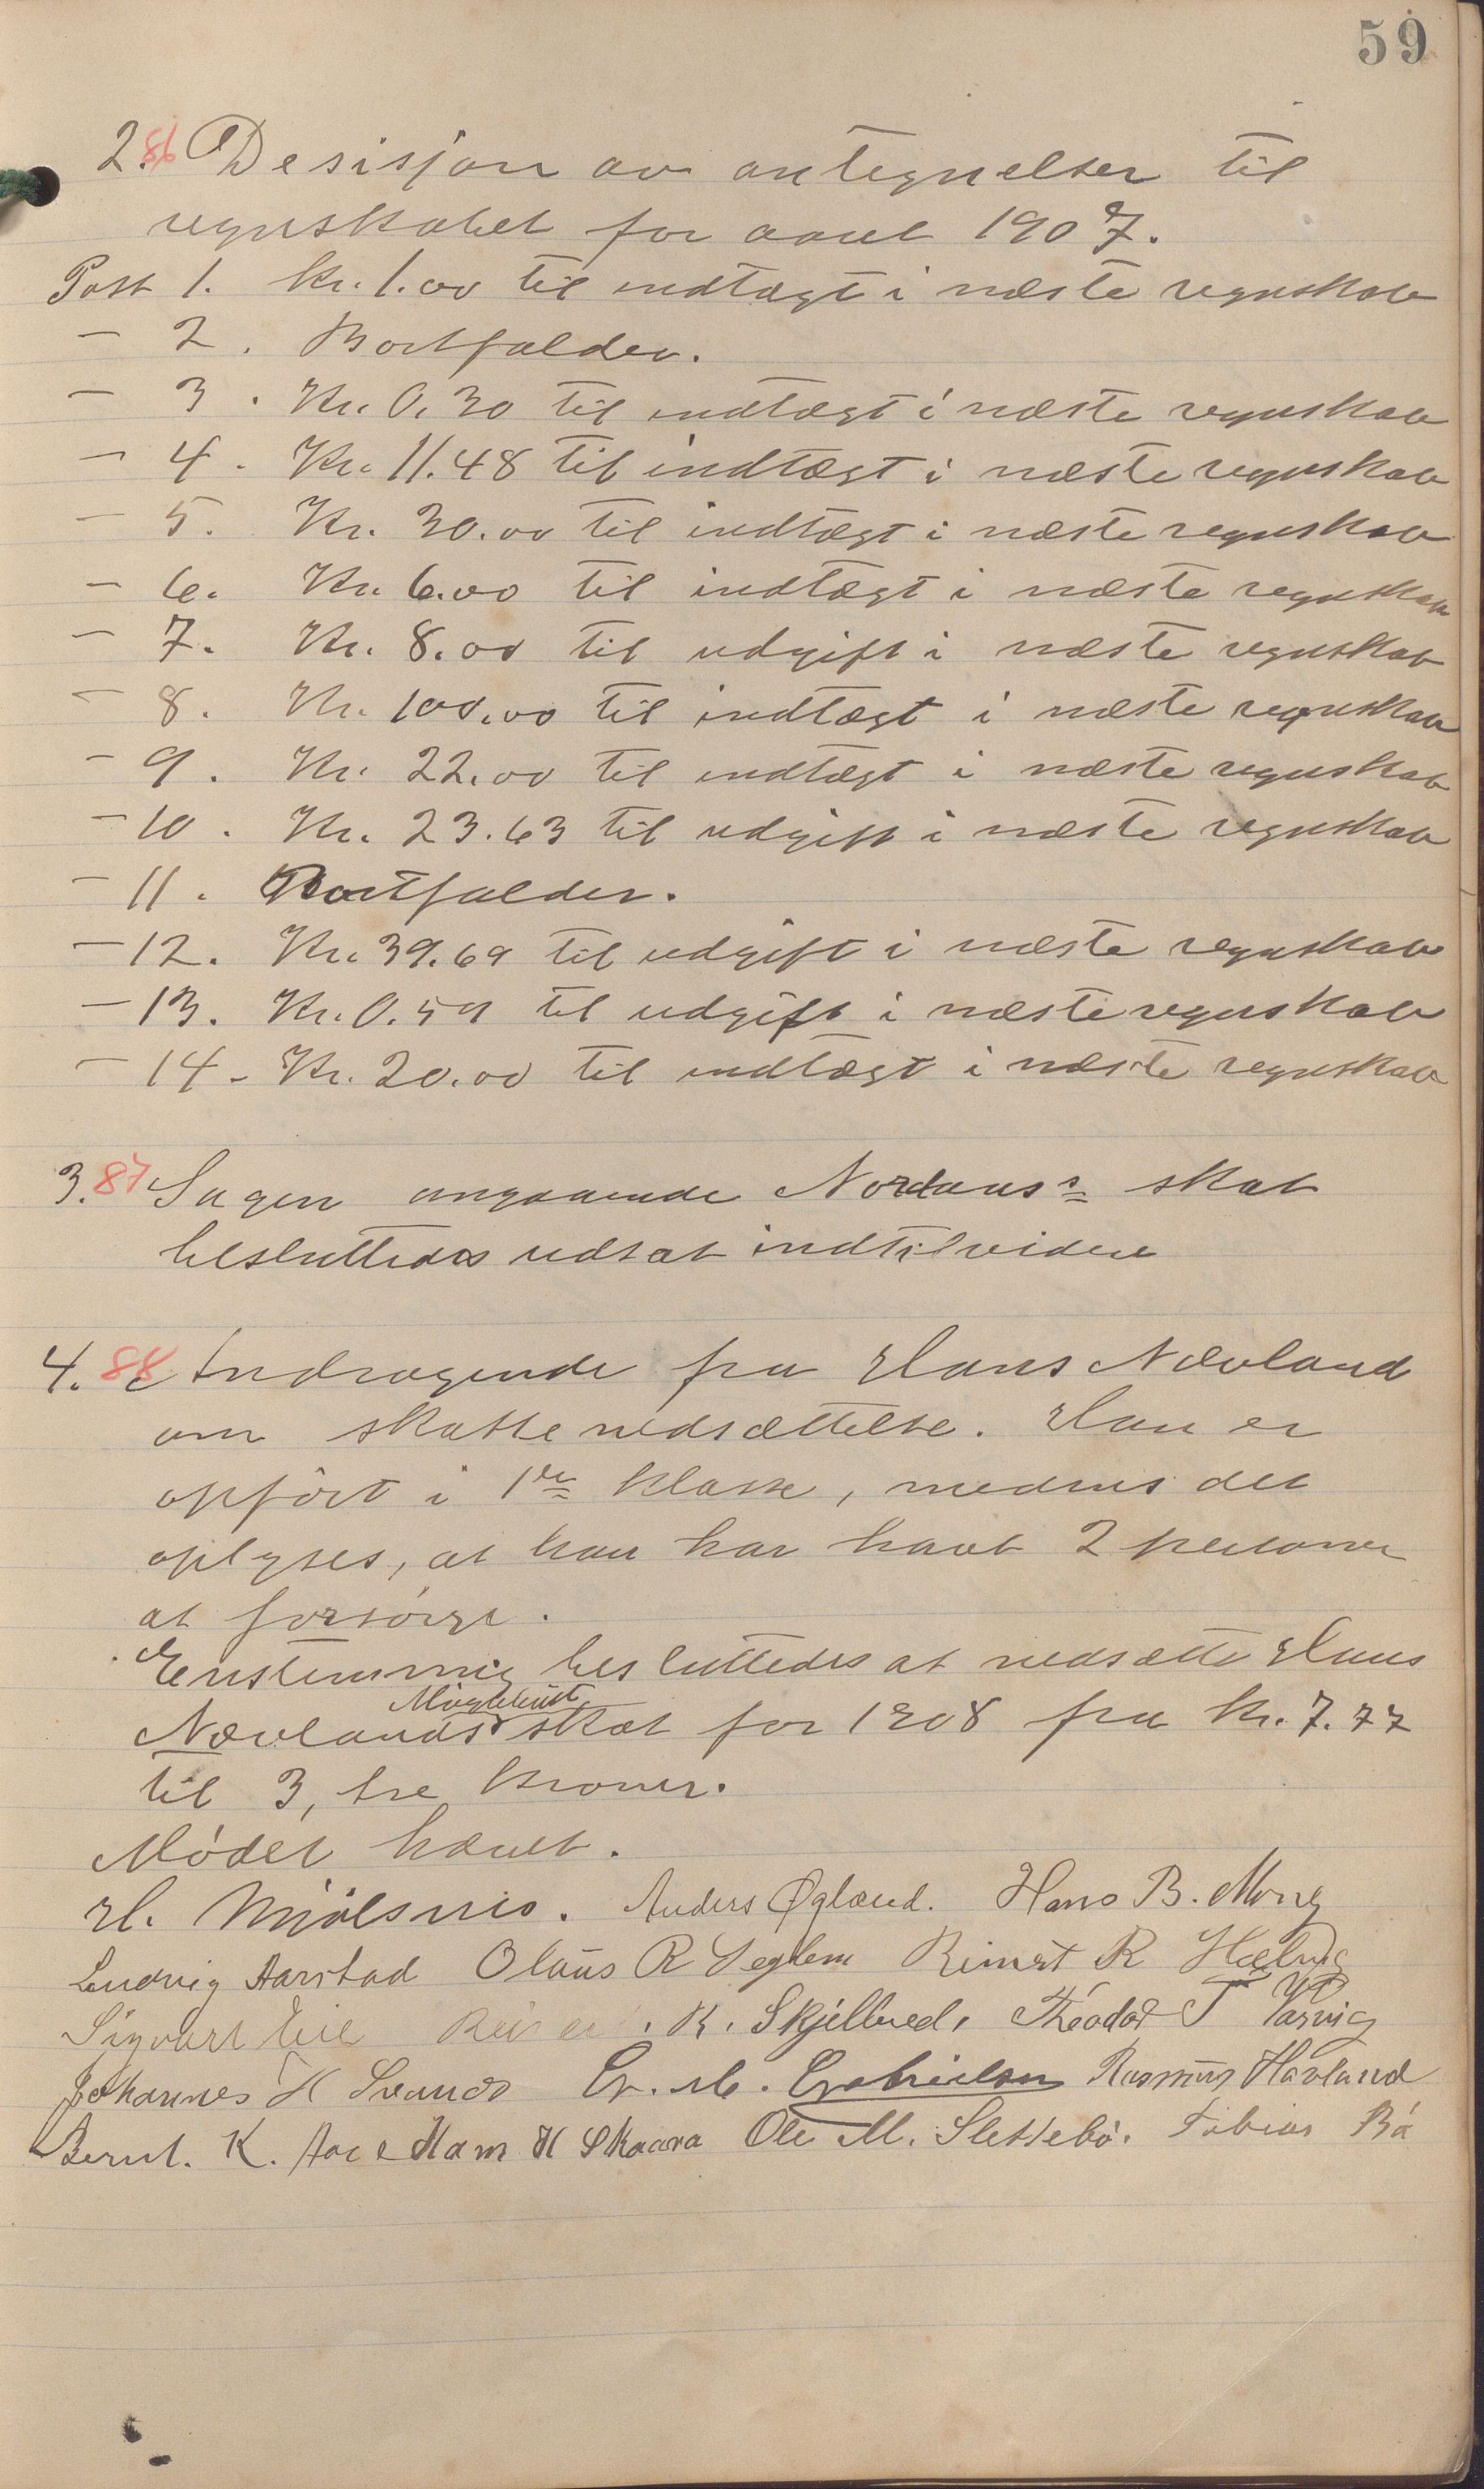 59
2. 86 Desisjon av antegnelser til
regnskabet for aaret 1907.
Post 1. Kr. 1.00 til indtægt i næste regnskab
— 2. Bortfalder.
— 3. Kr. 0.30 til indtægt i næste regnskab
— 4. Kr. 11.48 til indtægt i næste regnskab
— 5. Kr. 30.00 til indtægt i næste regnskab
— 6. Kr. 6.00 til indtægt i næste regnskab
— 7. Kr. 8.00 til udgift i næste regnskab
— 8. Kr. 100.00 til indtægt i næste regnskab
— 9. Kr. 22.00 til indtægt i næste regnskab
— 10. Kr. 23.63 til udgift i næste regnskab
— 11. Bortfalder.
— 12. Kr. 39.69 til udgift i næste regnskab
— 13. Kr. 0.59 til udgift i næste regnskab
— 14. Kr. 20.00 til indtægt i næste regnskab
3. 87 Sagen angaaende skat
besluttedes udsat indtil videre
4. 88 Andragende fra Hans Nævland
om skattenedsættelse. Han er
opført i 1ste klasse, medens det
oplyses, at han har havt 2 personer
at forsørge.
Enstemmig besluttedes at nedsætte Hans
Møgleliist
Nævlands skat for 1908 fra kr. 7.77
til 3, tre kroner.
Mødet hævet.
H. Mjølsnes. Anders Øgland. Hans B. Mong
Ludvig Aarstad Olaus R Seglem Reinert R Helvig
Sigvart Eie R. Skjelbred, Theodor T Varvig
Johannes H Svanes G. M. Gabrielsen Rasmus Havland
Bernt. K. Aase Ham H Skaara Ole M. Slettebø. Tobias Bø